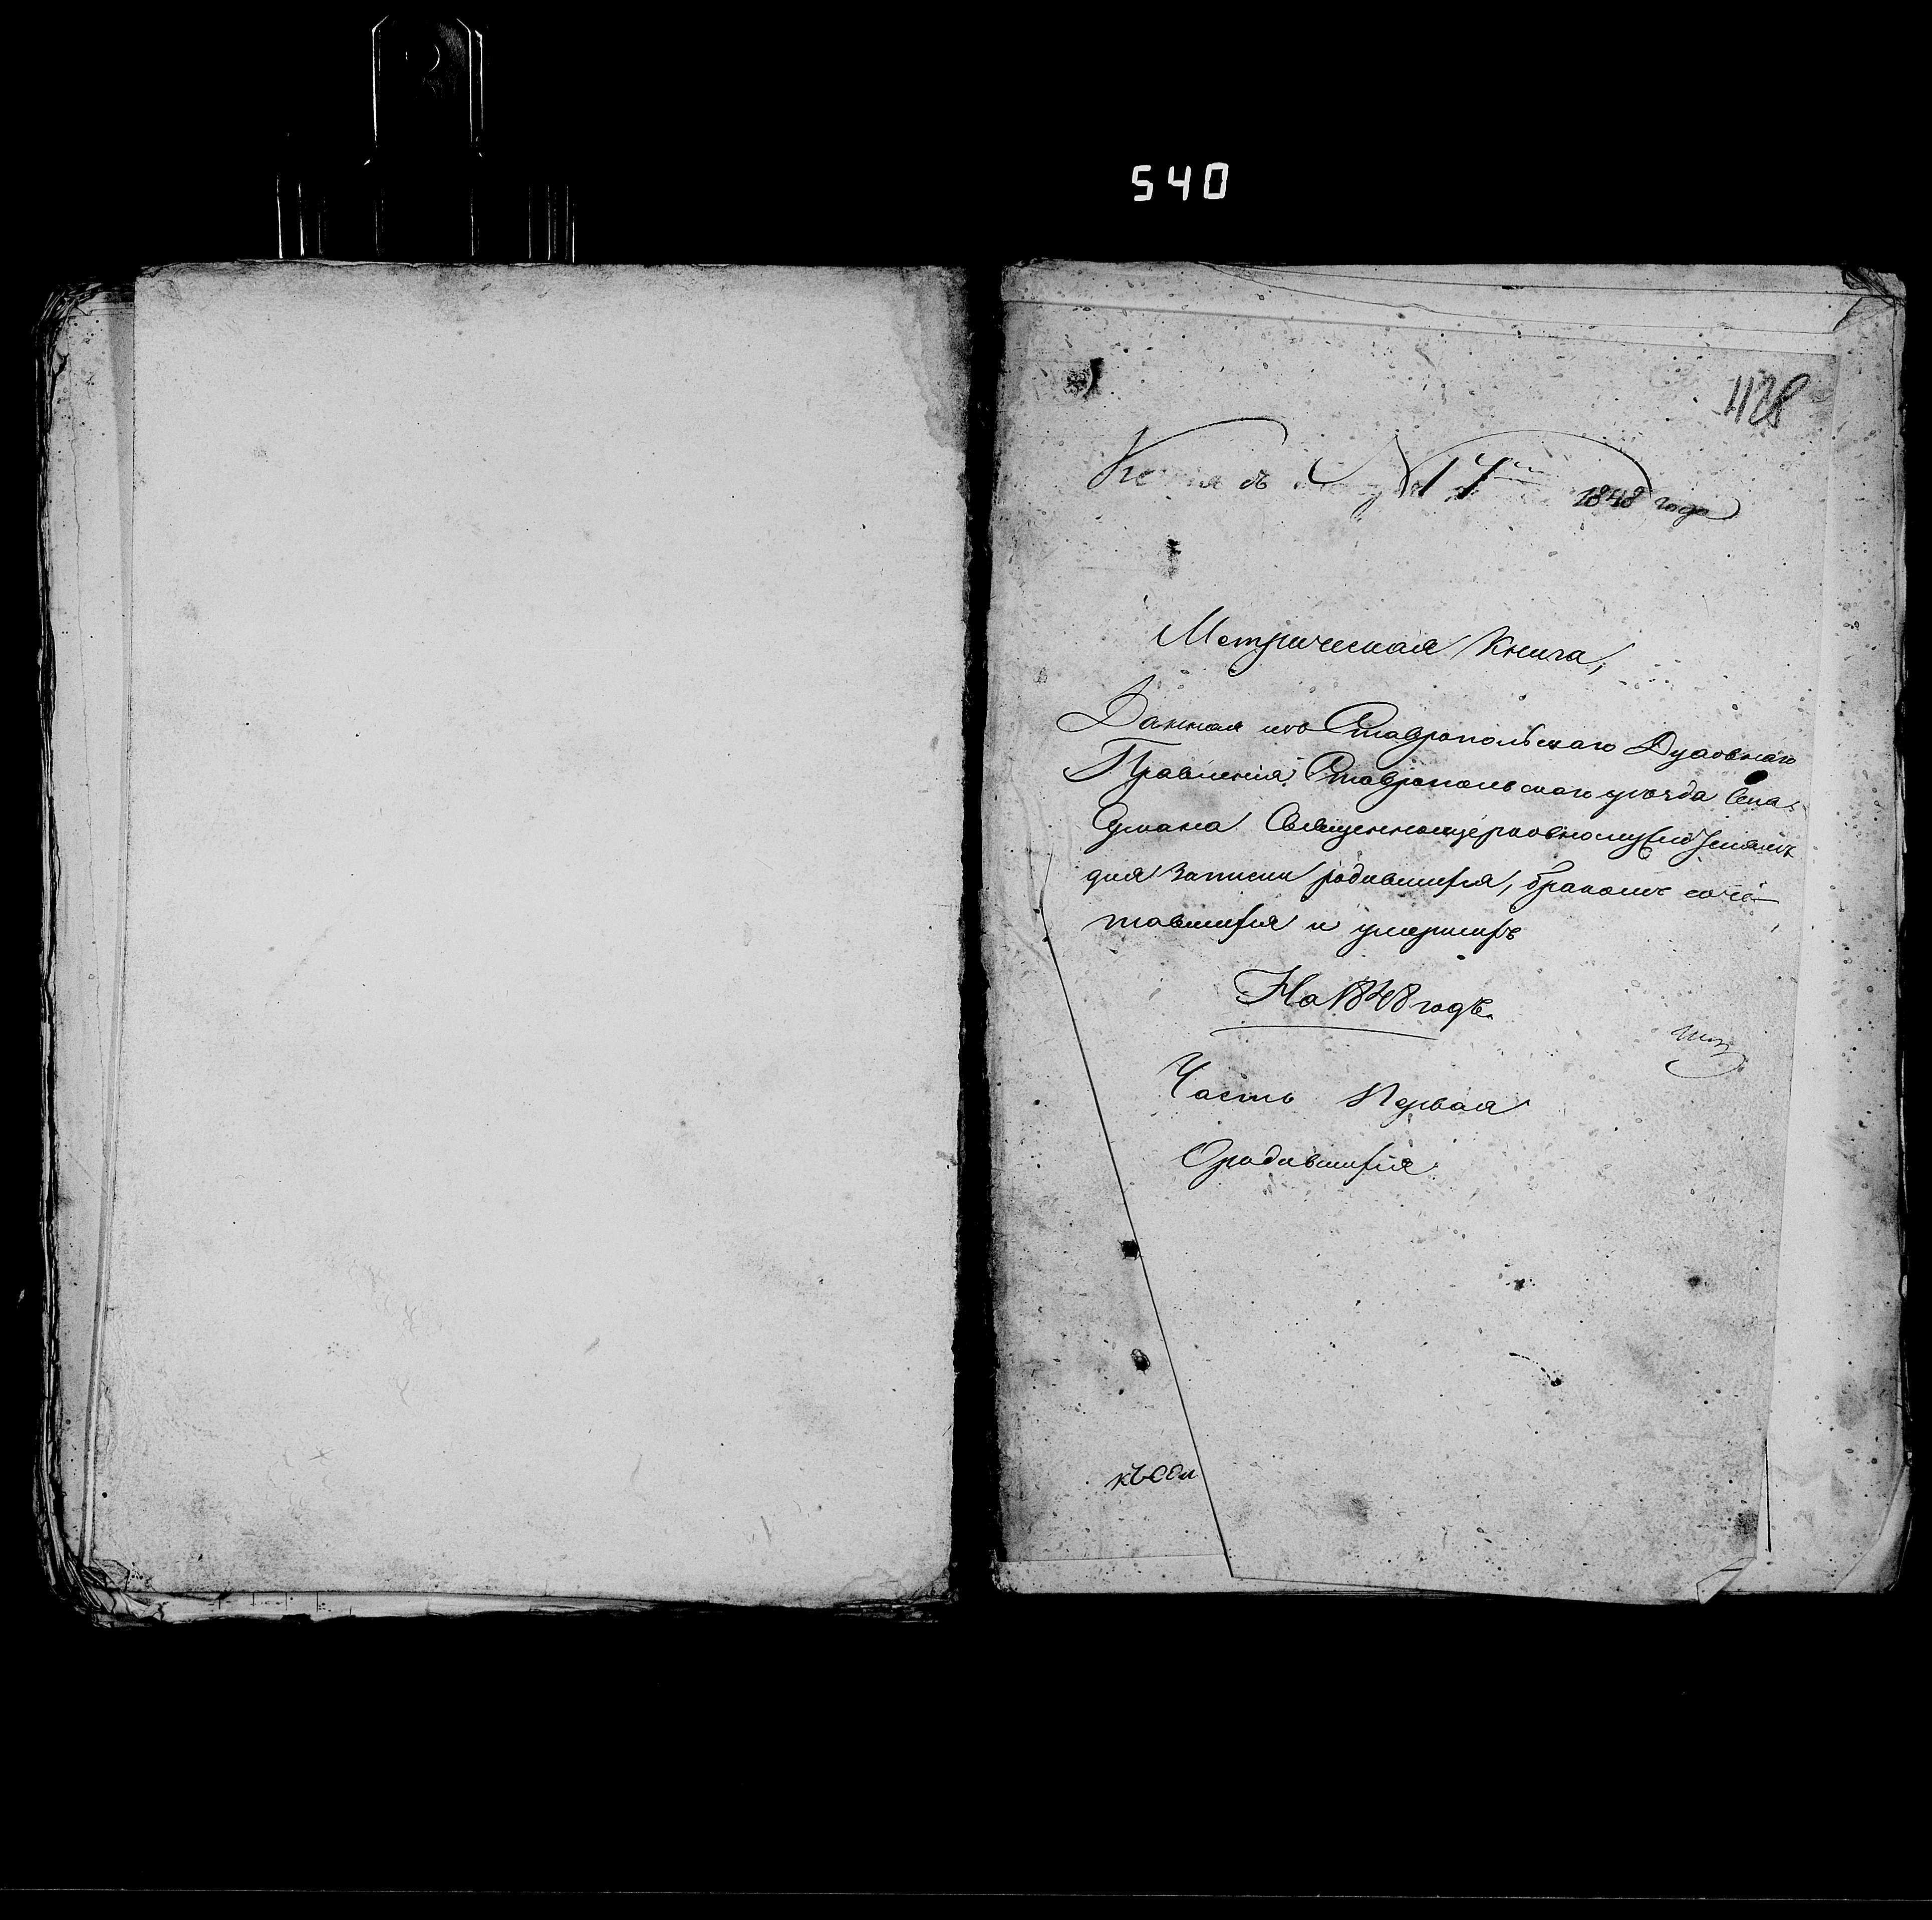 540
1128
№ 17 1848 года
Метрическая Книга,
Данная изъ Ставропольскаго Духовнаго
Правленія Ставропольскаго уѣзда Села
Священноцерковнослужителямъ
для записки родившихся, бракомъ соче-
тавшихся и умершихъ
На 1848 годъ.
Часть Первая
О родившихся